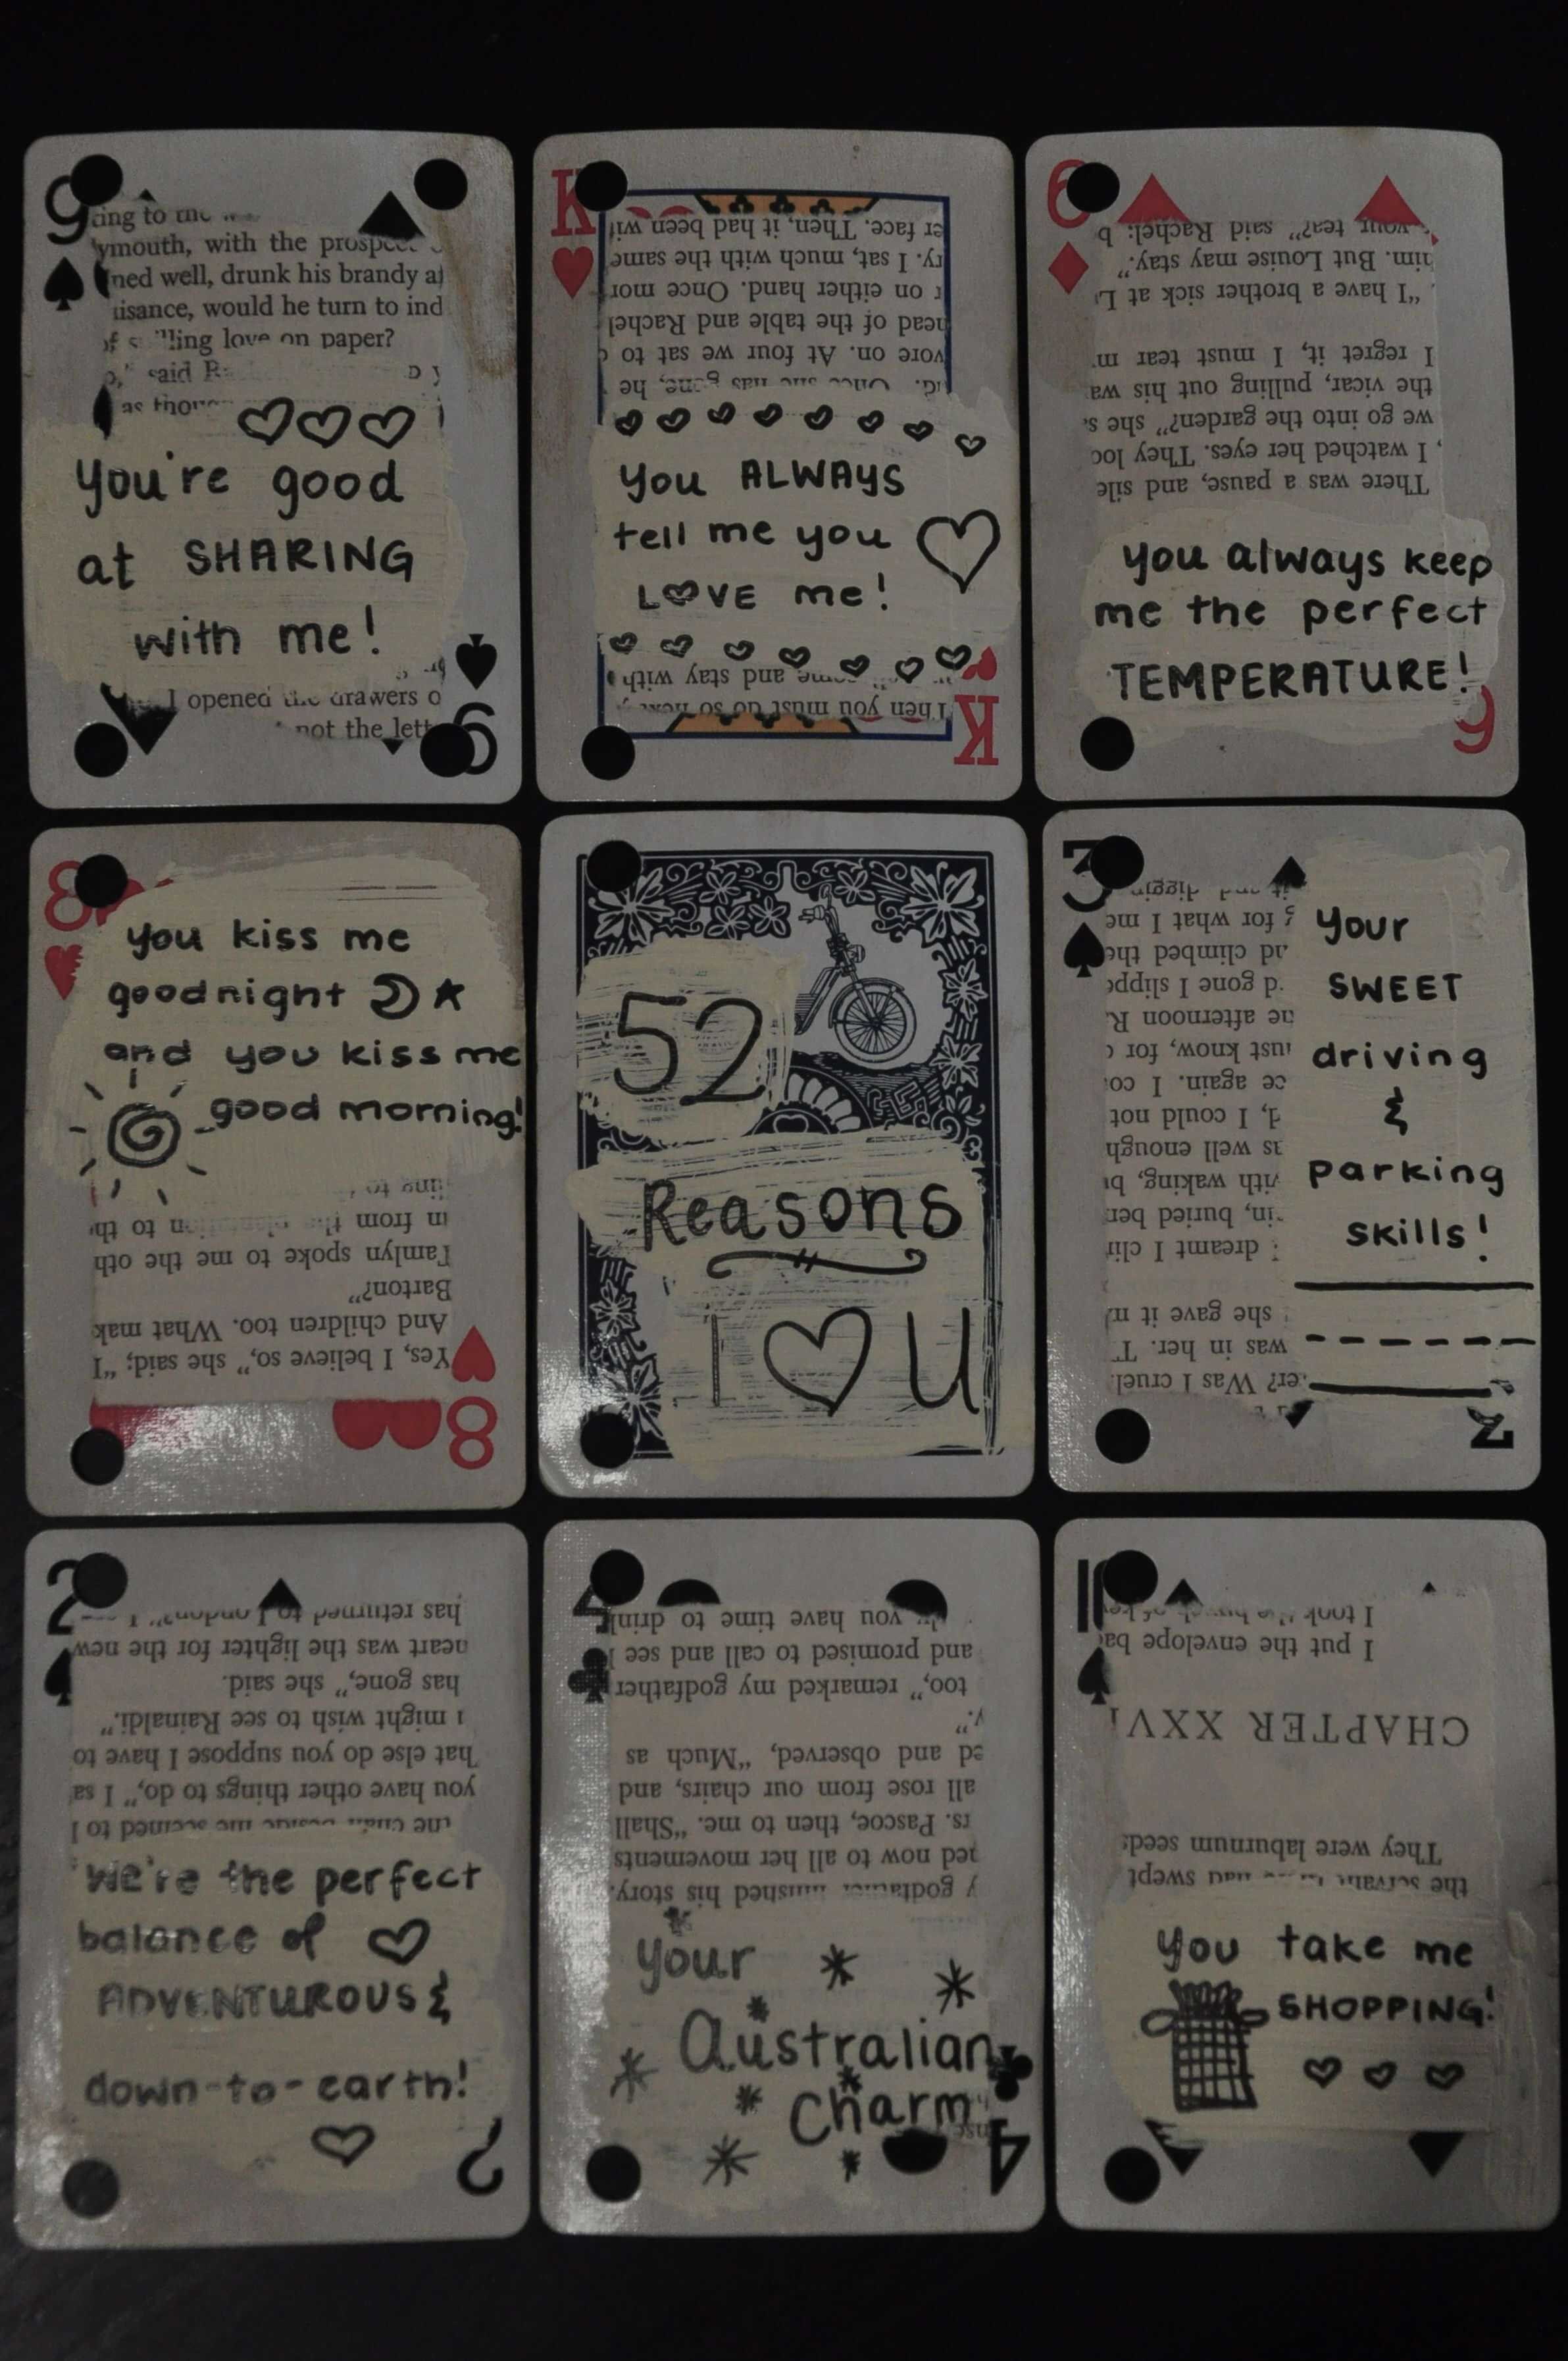 9
ymouth, with the
ned well, drunk his brandy
isance, would he turn to
love on paper?
said
You're good
at SHARING
with me!
I opened the drawers
not the
9
K
er face. Then, it had been
I sat, much with the same
on either hand. Once
head of the table and Rachel
on. At four we sat to
You ALWAYS
tell me you
LOVE me!
and stay with
Then you must do so
K
6
your tea?" said Rachel;
him. But Louise may stay."
"I have a brother sick at
I regret it, I must tear
the vicar, pulling out his
we go into the garden?" she
I watched her eyes. They
There was a pause, and
you always keep
me the perfect
TEMPERATURE!
6
8
you kiss me
goodnight
and you kiss me
good morning!
Yes, I believe so," she said; "I
And children too. What
Barton?"
Tamlyn spoke to me the
in from the plantation to
8
52
Reasons
I ♡ U
3
your
SWEET
driving
&
parking
skills!
er? Was I cruel
was in her.
she gave it
dreamt I
in, buried
with waking,
as well enough
d, I could not
again. I
know, for
afternoon
gone I
climbed
for what I
3
2
you have other things to do," I
hat else do you suppose I have to
might wish to see Rainaldi."
has gone," she said.
heart was the lighter for the new
has returned to London?"
We're the perfect
balance of ♡
ADVENTUROUS &
down-to-earth!
2
4
godfather finished his story.
now to all her movements
rs. Pascoe, then to me. "Shall
all rose from our chairs, and
and observed, "Much as
too," remarked my godfather
and promised to call and see
you have time to drink
your
Australian
Charm
4
the servant had swept
They were laburnum seeds
CHAPTER
I put the envelope
I took the
You take me
SHOPPING!